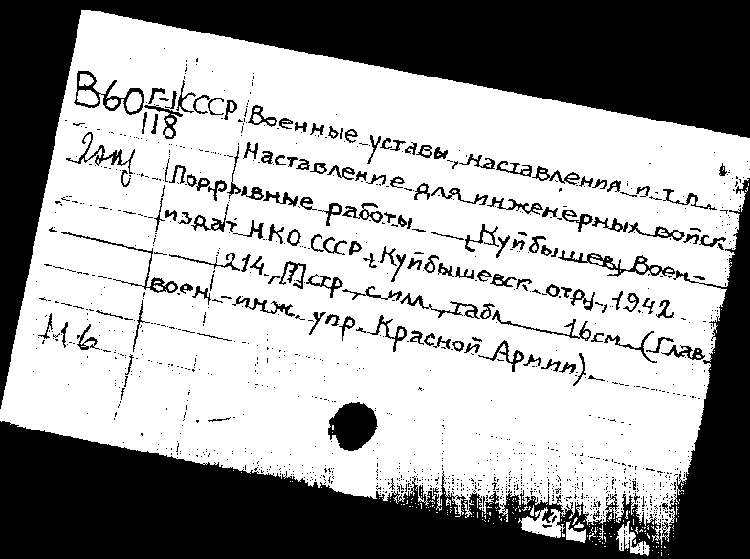 В60 Г-1/118 СССР. Военные уставы, наставления и т.п.
2 экз Наставление для инженерных войск.
Подрывные работы. [Куйбышев], Воен-
издат НКО СССР, [Куйбышевск. отд.], 1942.
214, [7] стр., с илл., табл. 16 см. (Глав.
воен.-инж. упр. Красной Армии).
М 6